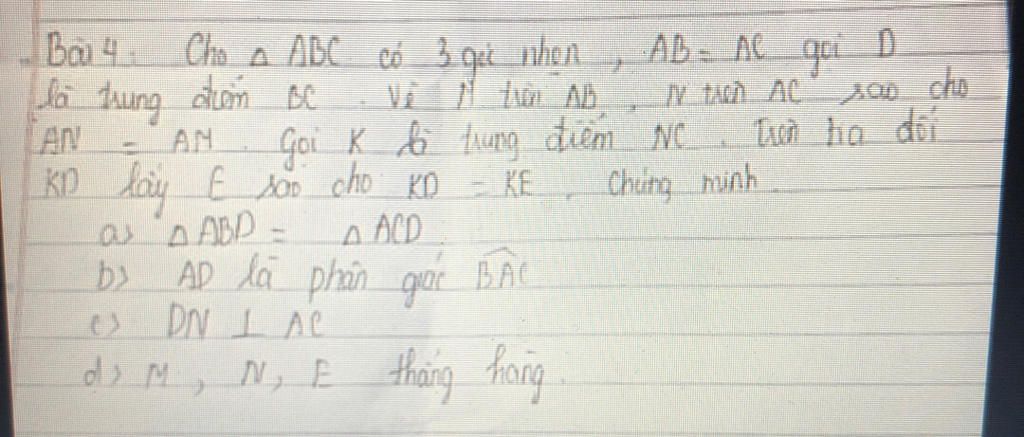 Bài 4. Cho Δ ABC có 3 góc nhọn, AB = AC gọi D
là trung điểm BC. Vẽ M trên AB, N trên AC sao cho
AN = AM. Gọi K là trung điểm NC. Trên tia đối
KD lấy E sao cho KD = KE. Chứng minh
a> Δ ABD = Δ ACD
b> AD là phân giác BAC
c> DN ⊥ AC
d> M, N, E thẳng hàng.